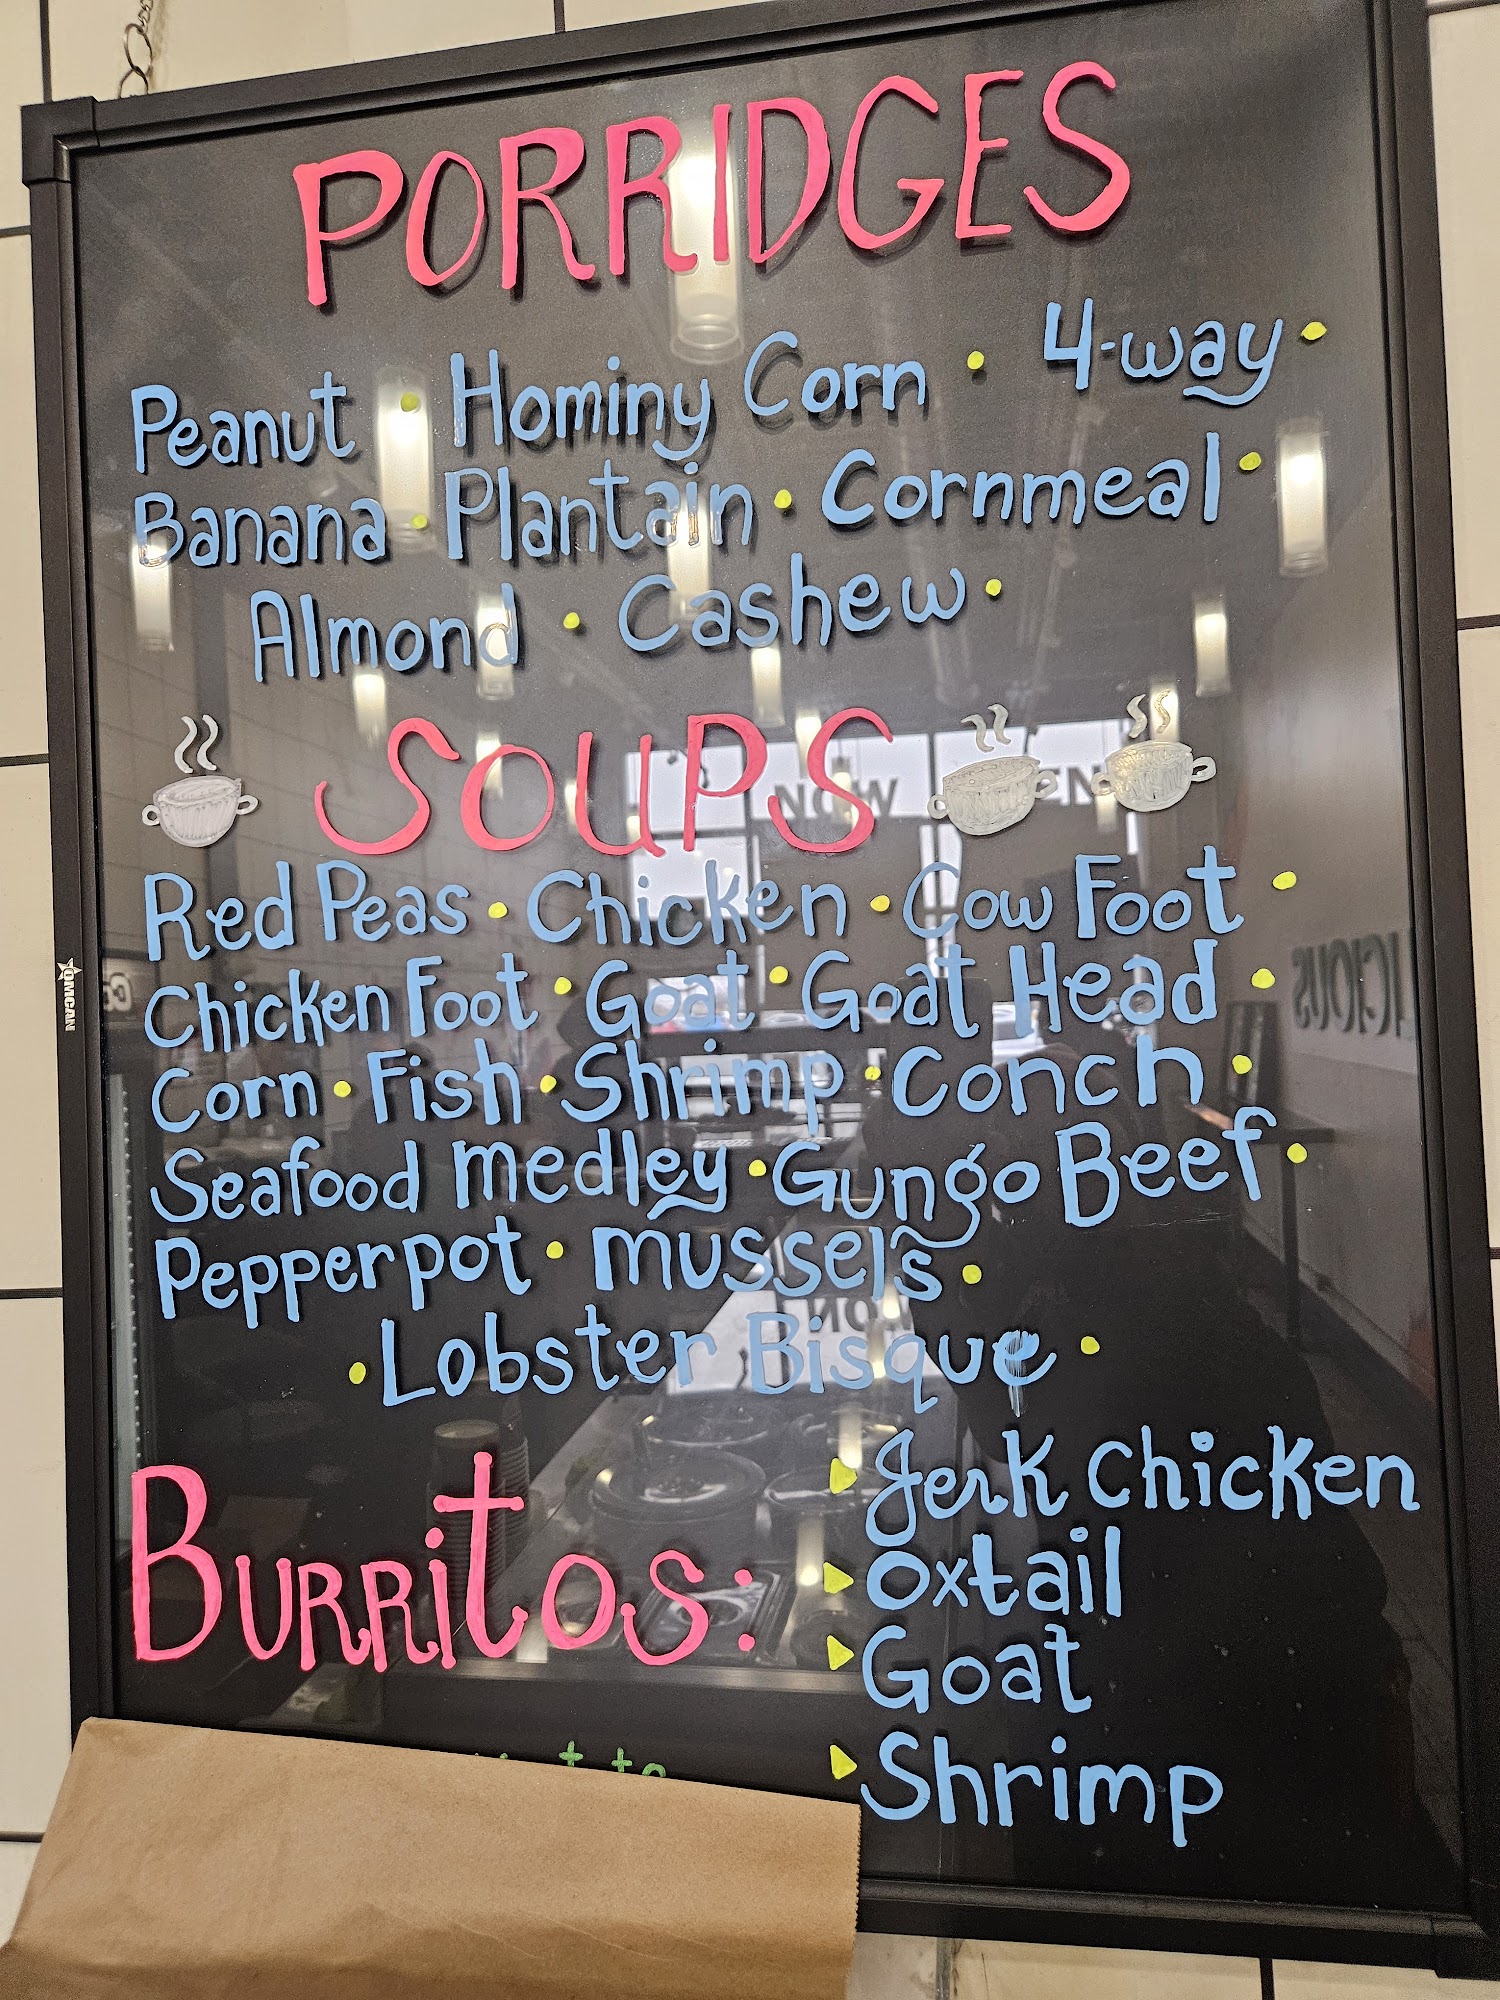 PORRIDGES
Peanut • Hominy Corn • 4-way •
Banana • Plantain • Cornmeal •
Almond • Cashew •
SOUPS
Red Peas • Chicken • Cow Foot •
Chicken Foot • Goat • Goat Head •
Corn • Fish • Shrimp • Conch •
Seafood medley • Gungo Beef •
Pepperpot • mussels •
• Lobster Bisque •
BURRitos:
Jerk Chicken
Oxtail
Goat
Shrimp
OMCAN
NOW